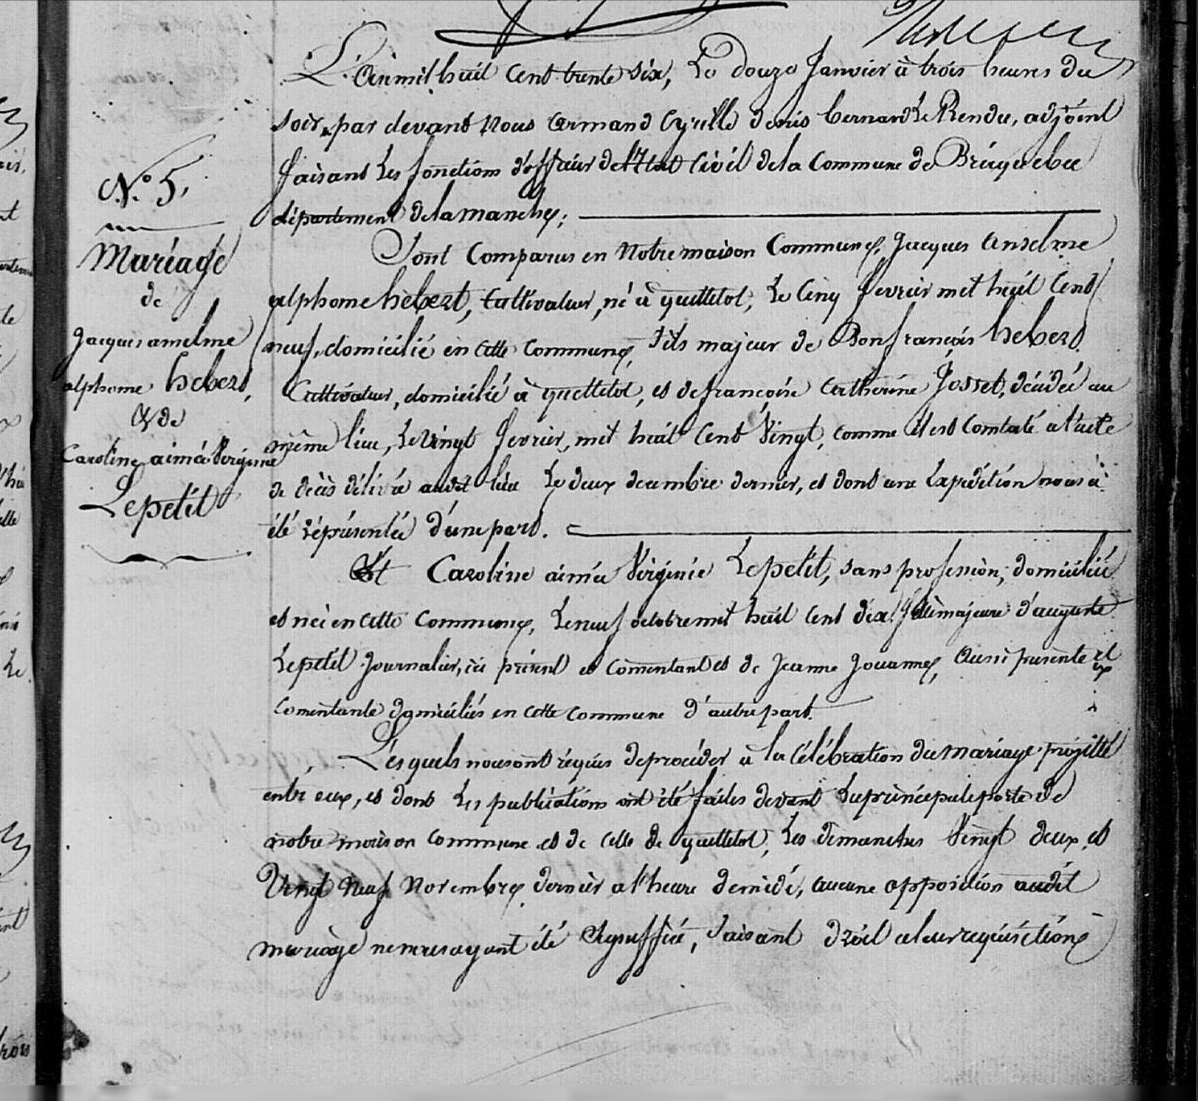 N.° 5.
Mariage
de
Jacques anselme
alphonse hebert,
& de
Caroline aimée Virginie
Lepetit
L'An mil huit Cent trente six, Le douze Janvier à trois heures du
soir, par devant Nous Armand Cyrille denis bernard Le Rendu, adjoint
faisant Les fonctions d'officier de l'Etat Civil de la Commune de Bricquebec
département de la manche,
Sont Comparus en Notre maison Commune, Jacques Anselme
alphonse hebert, Cultivateur, né à quettetot, Le Cinq fevrier mil huit Cent
neuf, domicilié en cette Commune, fils majeur de Bon françois hebert
Cultivateur, domicilié à quettetot, et de françoise Catherine Josset, décédée au
même lieu, Le vingt fevrier, mil huit Cent Vingt, comme il est Constaté a l'acte
de décès délivré audit lieu Le deux décembre dernier, et dont une Expédition nous à
été réprésentée d'une part.
Et Caroline aimée Virginie Lepetit, sans profession, domiciliée
et née en cette Commune, Le neuf octobre mil huit Cent dix, fille majeure d'auguste
Lepetit Journalier, ici présent et Consentant et de Jeanne Jouanne, Aussi présente et
Consentante domiciliés en cette Commune d'autre part.
Lesquels nous ont réquis de procéder à la Célébration du Mariage projetté
entre eux, et dont Les publications ont été faites devant La principale porte de
notre maison commune et de celle de quettetot, Les dimanches Vingt deux, et
Vingt Neuf Novembre dernier a l'heure de midi, aucune opposition audit
mariage ne nous ayant été Signiffiée, faisant droit a leur réquisition,